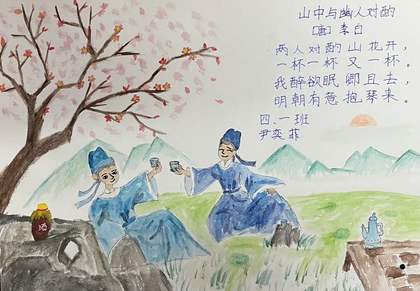 山中与幽人对酌
[唐] 李白
两人对酌山花开,
一杯一杯又一杯。
我醉欲眠卿且去,
明朝有意抱琴来。
四.一班
尹奕菲
酒